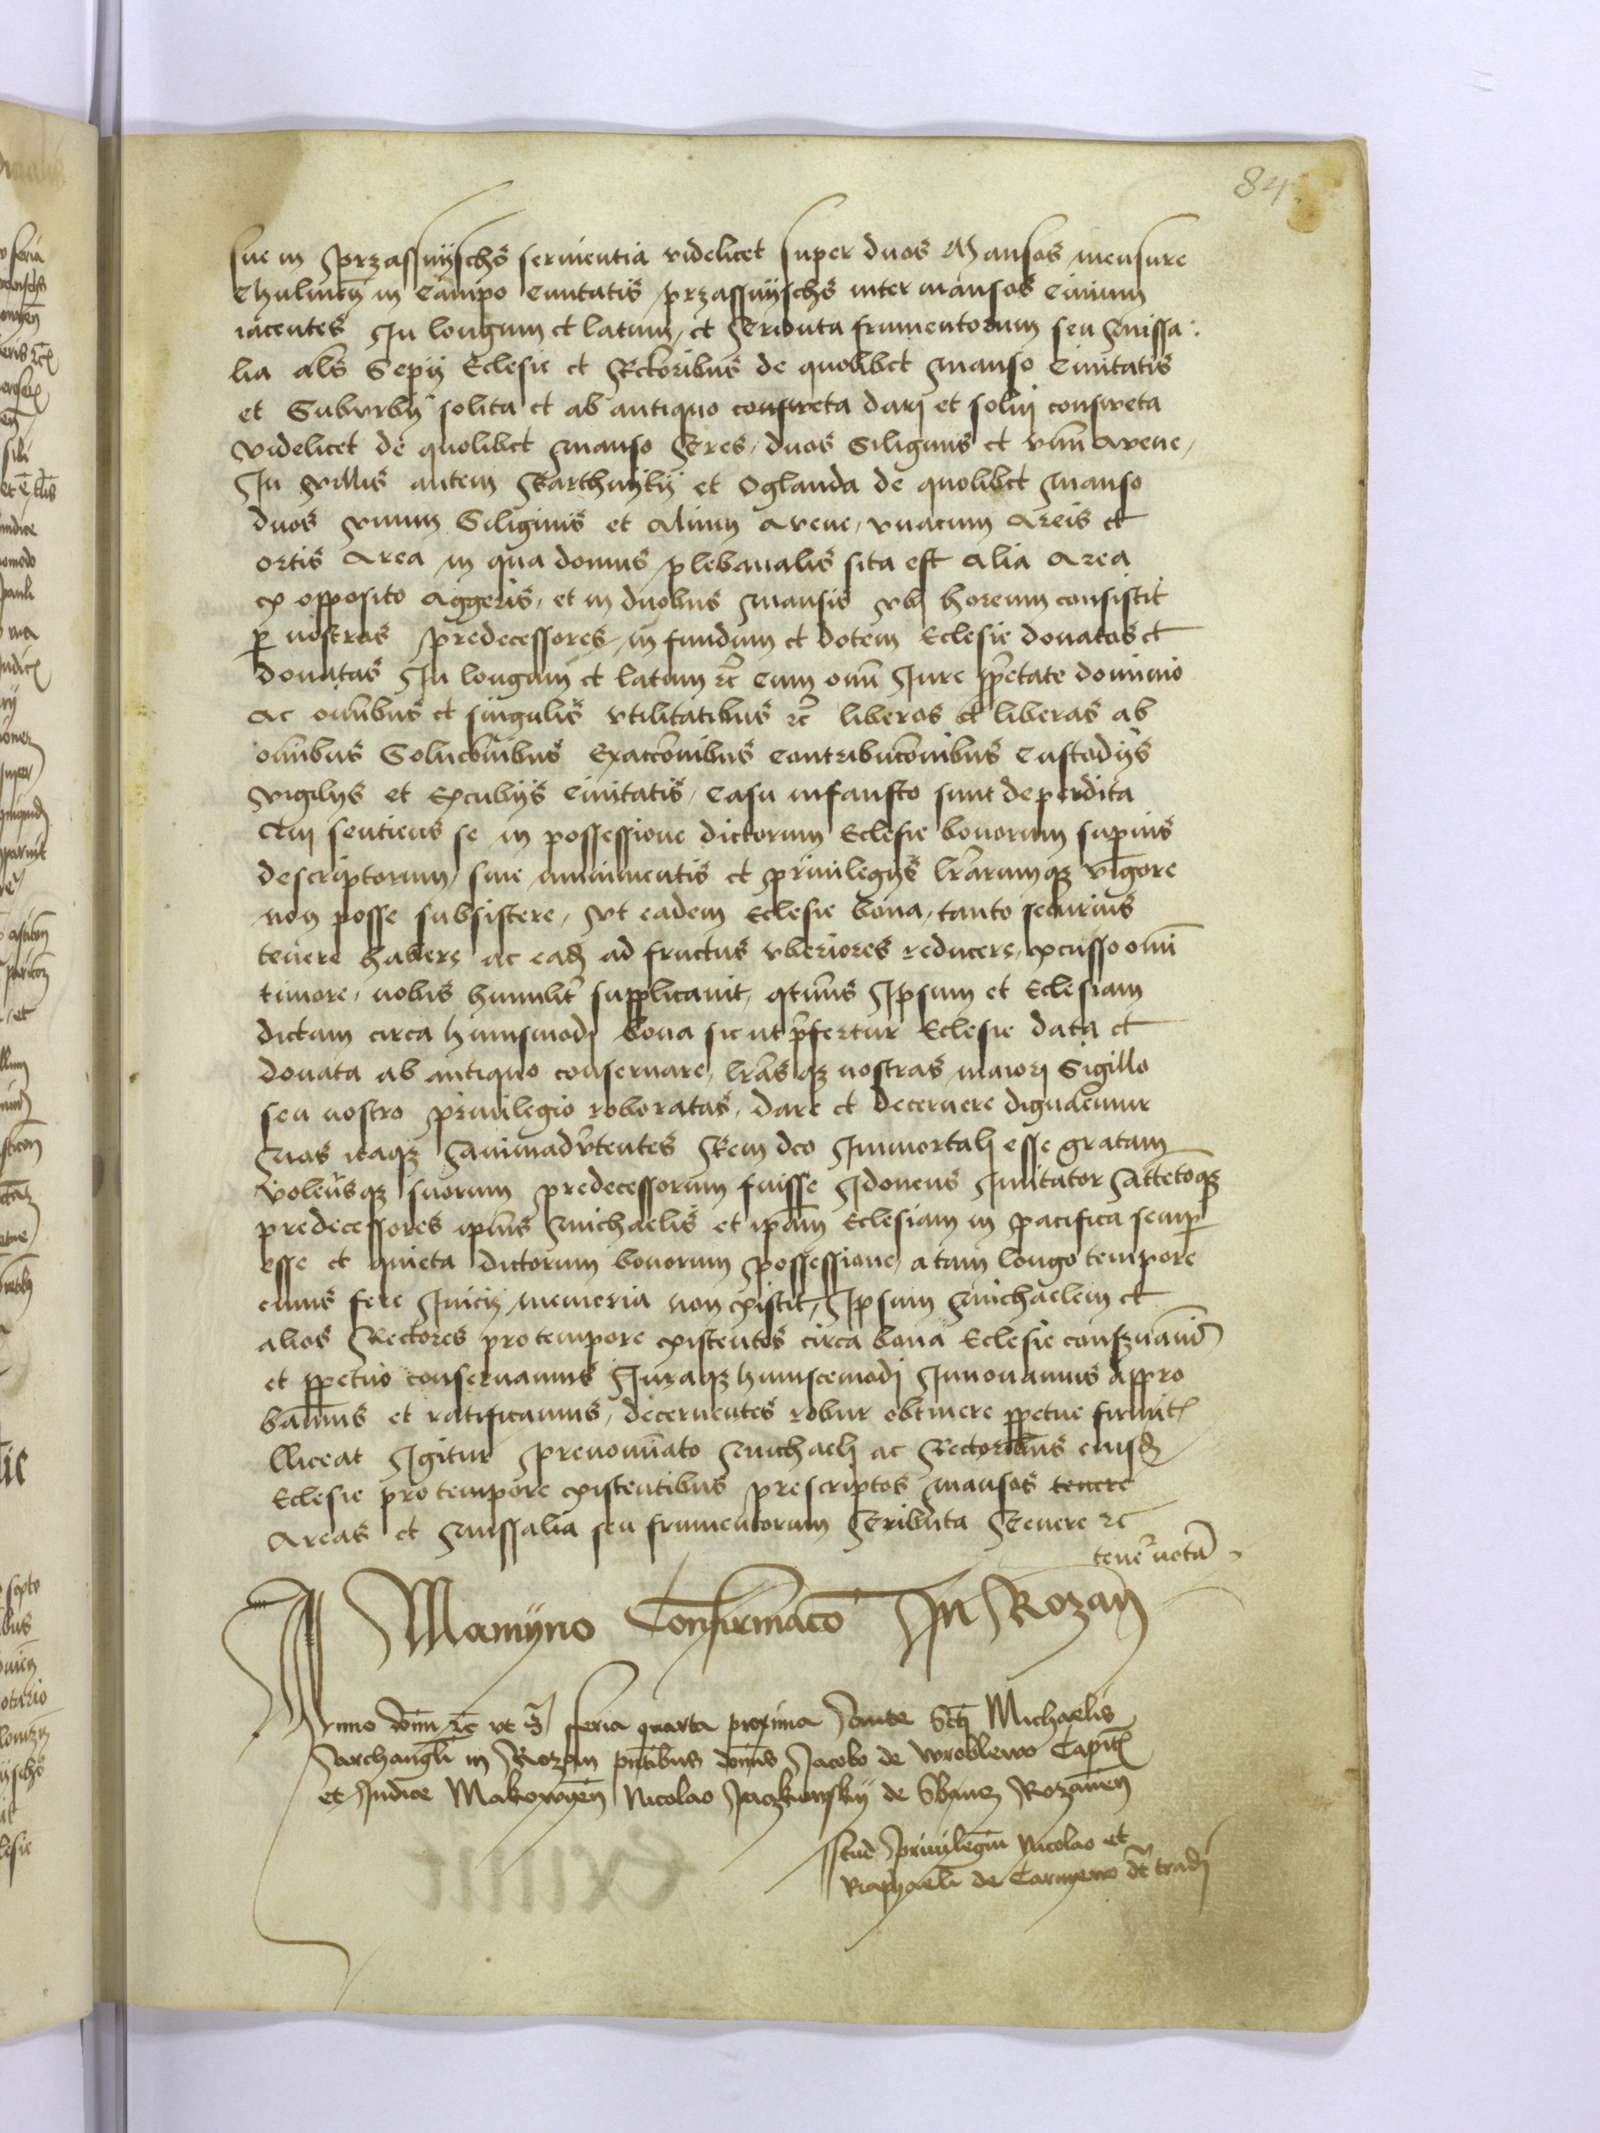 84
sue in Przassnÿschs seruientia videlicet super duos Mansos mensure
Chulmeñ in Campo Ciuitatis przassnÿschs inter mansos Ciuium
iacentes In longum et latum, et Tributa frumentorum seu Missa
lia als Sepÿ Eclesie et Rectoribus de quolibet Manso Ciuitatis
et Suburbÿ solita et ab antiquo consweta darj et soluj consweta
videlicet de quolibet Manso Tres, duos Siliginis et vnū avene,
In villis autem Karthnÿky et Oglanda de quolibet Manso
duos vnum Siliginis et Alium avene, vnacum Areis et
ortis Area in qua domus plebanalis sita est Alia Area
ex opposito Aggeris, et in duobus Mansis vbj horeum consistit
p nostros predecessores in fundum et dotem Eclesie donatos et
donatas In longum et latum rc̃ Cum om̃i Iure ꝓp̃etate dominio
Ac om̃ibus et singulis vtilitatibus rc̃ liberos et liberas ab
om̃ibus Soluc̃onibus Exacc̃onibus Contribuc̃onibus Custodÿs
Vigilÿs et Excubÿs Ciuitatis, Casu infausto sunt deperdita
Cuj sentiens se in possessione dictorum Eclesie bonorum supius
descriptorum, sine munimentis et priuilegÿs lr̃arumqꝫ vigore
non posse subsistere, vt eadem Eclesie bona, tanto securius
tenere habere ac ead ad fructus vberiores reducere, excusso om̃i
timore, nobis humilit̃ supplicauit, qt̃nus Ipsum et Eclesiam
dictam circa huiusmodj bona sic ut p̃fertur Eclesie data et
donata ab antiquo conseruare, lr̃asqꝫ nostras, maiorj Sigillo
seu nostro priuilegio roboratas, dare et decernere dignaremur
Nos itaqꝫ Animadṽtentes Rem deo Immortalj esse gratam
volen̄sqꝫ suorum predecessorum fuisse Idoneus Imitator Attentoqꝫ
predecessores ip̃ius Michaelis et ip̃am Eclesiam in pacifica semp
esse et quieta dictorum bonorum possessione, a tam longo tempore
cuius fere Inicij memoria non existit, Ipsum Michaelem et
alios Rectores pro tempore existentes circa bona Eclesie conseruand
et ꝓpetuo conseruamus Iuraqꝫ huiuscemodj Innouamus Appro
bamus et ratificamus, decernentes robur obtinere ꝓpetue firmit
lliceat Igitur Prenominato Michaelj ac Rectoribus eiusd
Eclesie pro tempore existentibus prescriptos Mansos tenere
Areas et Missalia seu frumentorum Tributa Tenere rc̃
Mamÿno Confirmac̃o In Rozan
Anno dom̃ rc̃ vt sᵃ feria quarta proxima Ante Sct̃j Michaelis
Archangl̃i in Rozan pñtibus domis Jacobo de Wroblewo Capit
et Judice Makowyeñ Nicolao de Rozanieñ
Istud Priuilegiū Nicolao et
Raphaeli de dt̃ tradj